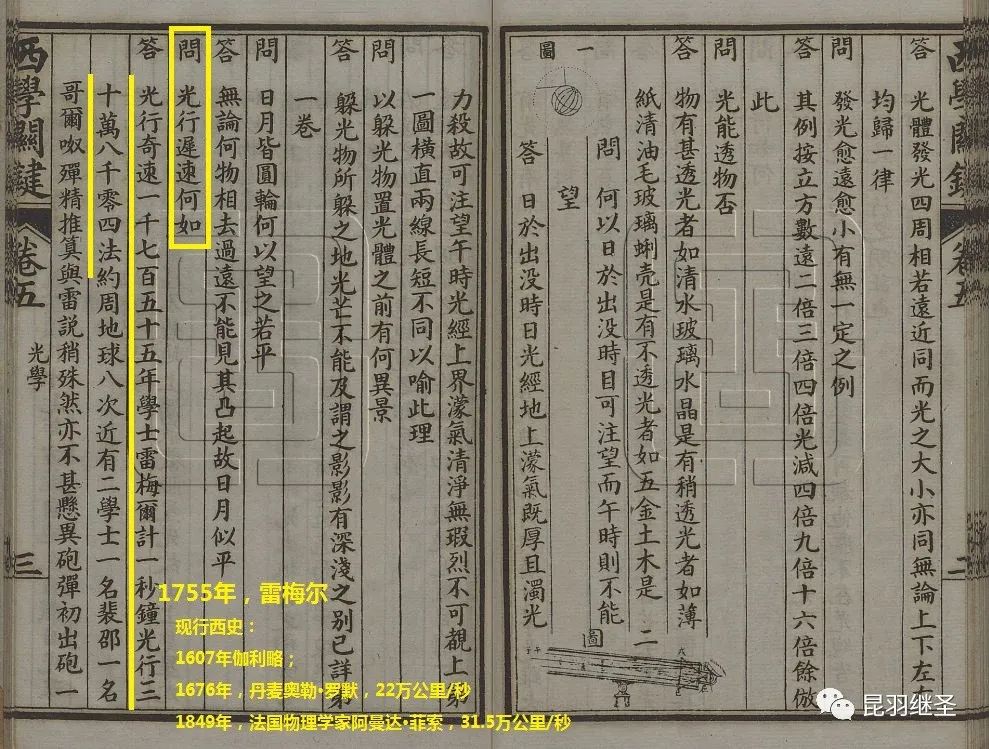 西學關鍵 卷五 二
答 光體發光四周相若遠近同而光之大小亦同無論上下左右
均歸一律
問 發光愈遠愈小有無一定之例
答 其例按立方數遠二倍三倍四倍光減四倍九倍十六倍餘倣
此
問 光能透物否
答 物有甚透光者如清水玻璃水晶是有稍透光者如薄
紙清油毛玻璃蜊壳是有不透光者如五金土木是
一圖
二圖
問 何以日於出没時目可注望而午時則不能
望
答 日於出没時日光經地上濛氣既厚且濁光
力殺故可注望午時光經上界濛氣清淨無瑕烈不可覩上第
一圖橫直兩線長短不同以喻此理
問 以躲光物置光體之前有何異景
答 躲光物所躲之地光芒不能及謂之影影有深淺之别已詳第
一卷
問 日月皆圓輪何以望之若平
答 無論何物相去過遠不能見其凸起故日月似平
問 光行遲速何如
答 光行奇速一千七百五十五年學士雷梅爾計一秒鐘光行三
十萬八千零四法約周地球八次近有二學士一名裴邵一名
哥爾呶殫精推算與雷説稍殊然亦不甚懸異砲彈初出砲一
西學關鍵 卷五 光學 三
1755年，雷梅尔
现行西史：
1607年伽利略；
1676年，丹麦奥勒·罗默，22万公里/秒
1849年，法国物理学家阿曼达·菲索，31.5万公里/秒
昆羽继圣